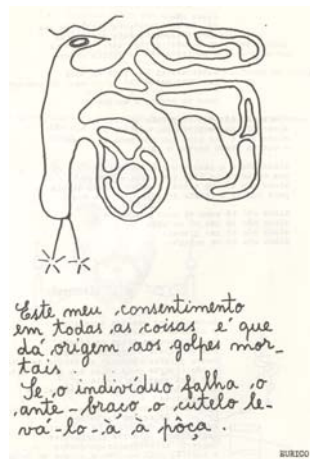 Este meu consentimento
em todas as coisas é que
dá origem aos golpes mor-
tais.
Se o indivíduo falha o
ante-braço o cutelo le-
vá-lo-à à pôça.
EURICO